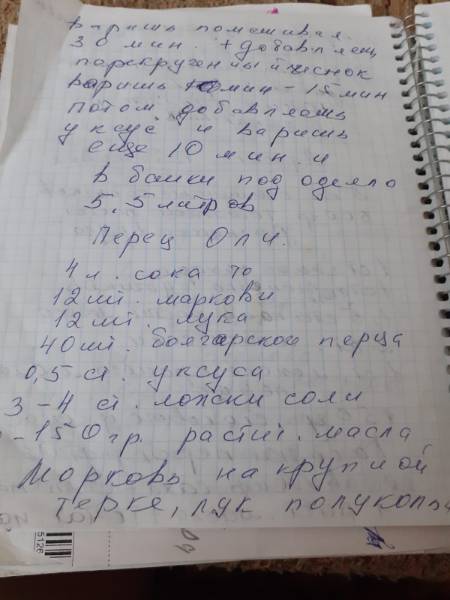 варишь помешивая
30 мин. + добавляещ
перекрученный чеснок
варишь 10 мин - 15 мин
потом добавляешь
уксус и варишь
еще 10 мин. и
в банки под одеяло
5,5 литров
Перец Оли.
4 л. сока то
12 шт. маркови
12 шт. лука
40 шт. болгарского перца
0,5 ст. уксуса
3-4 ст. ложки соли
-150 гр. растит. масла
Морковь на крупной
терке, лук полукольц
5126